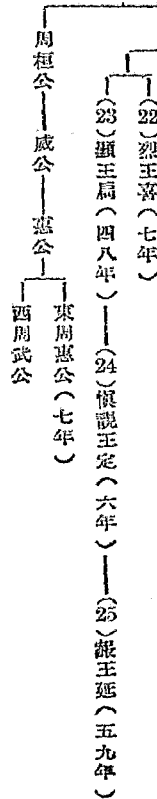 (22)烈王喜(七年)
(23)顯王扁(四八年)——(24)愼靚王定(六年)——(25)赧王延(五九年)
周桓公——威公——惠公
東周惠公(七年)
西周武公